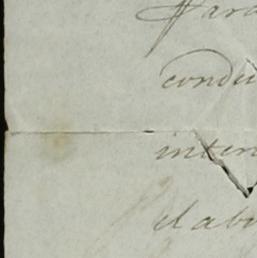 Para
condu
inter
el abu